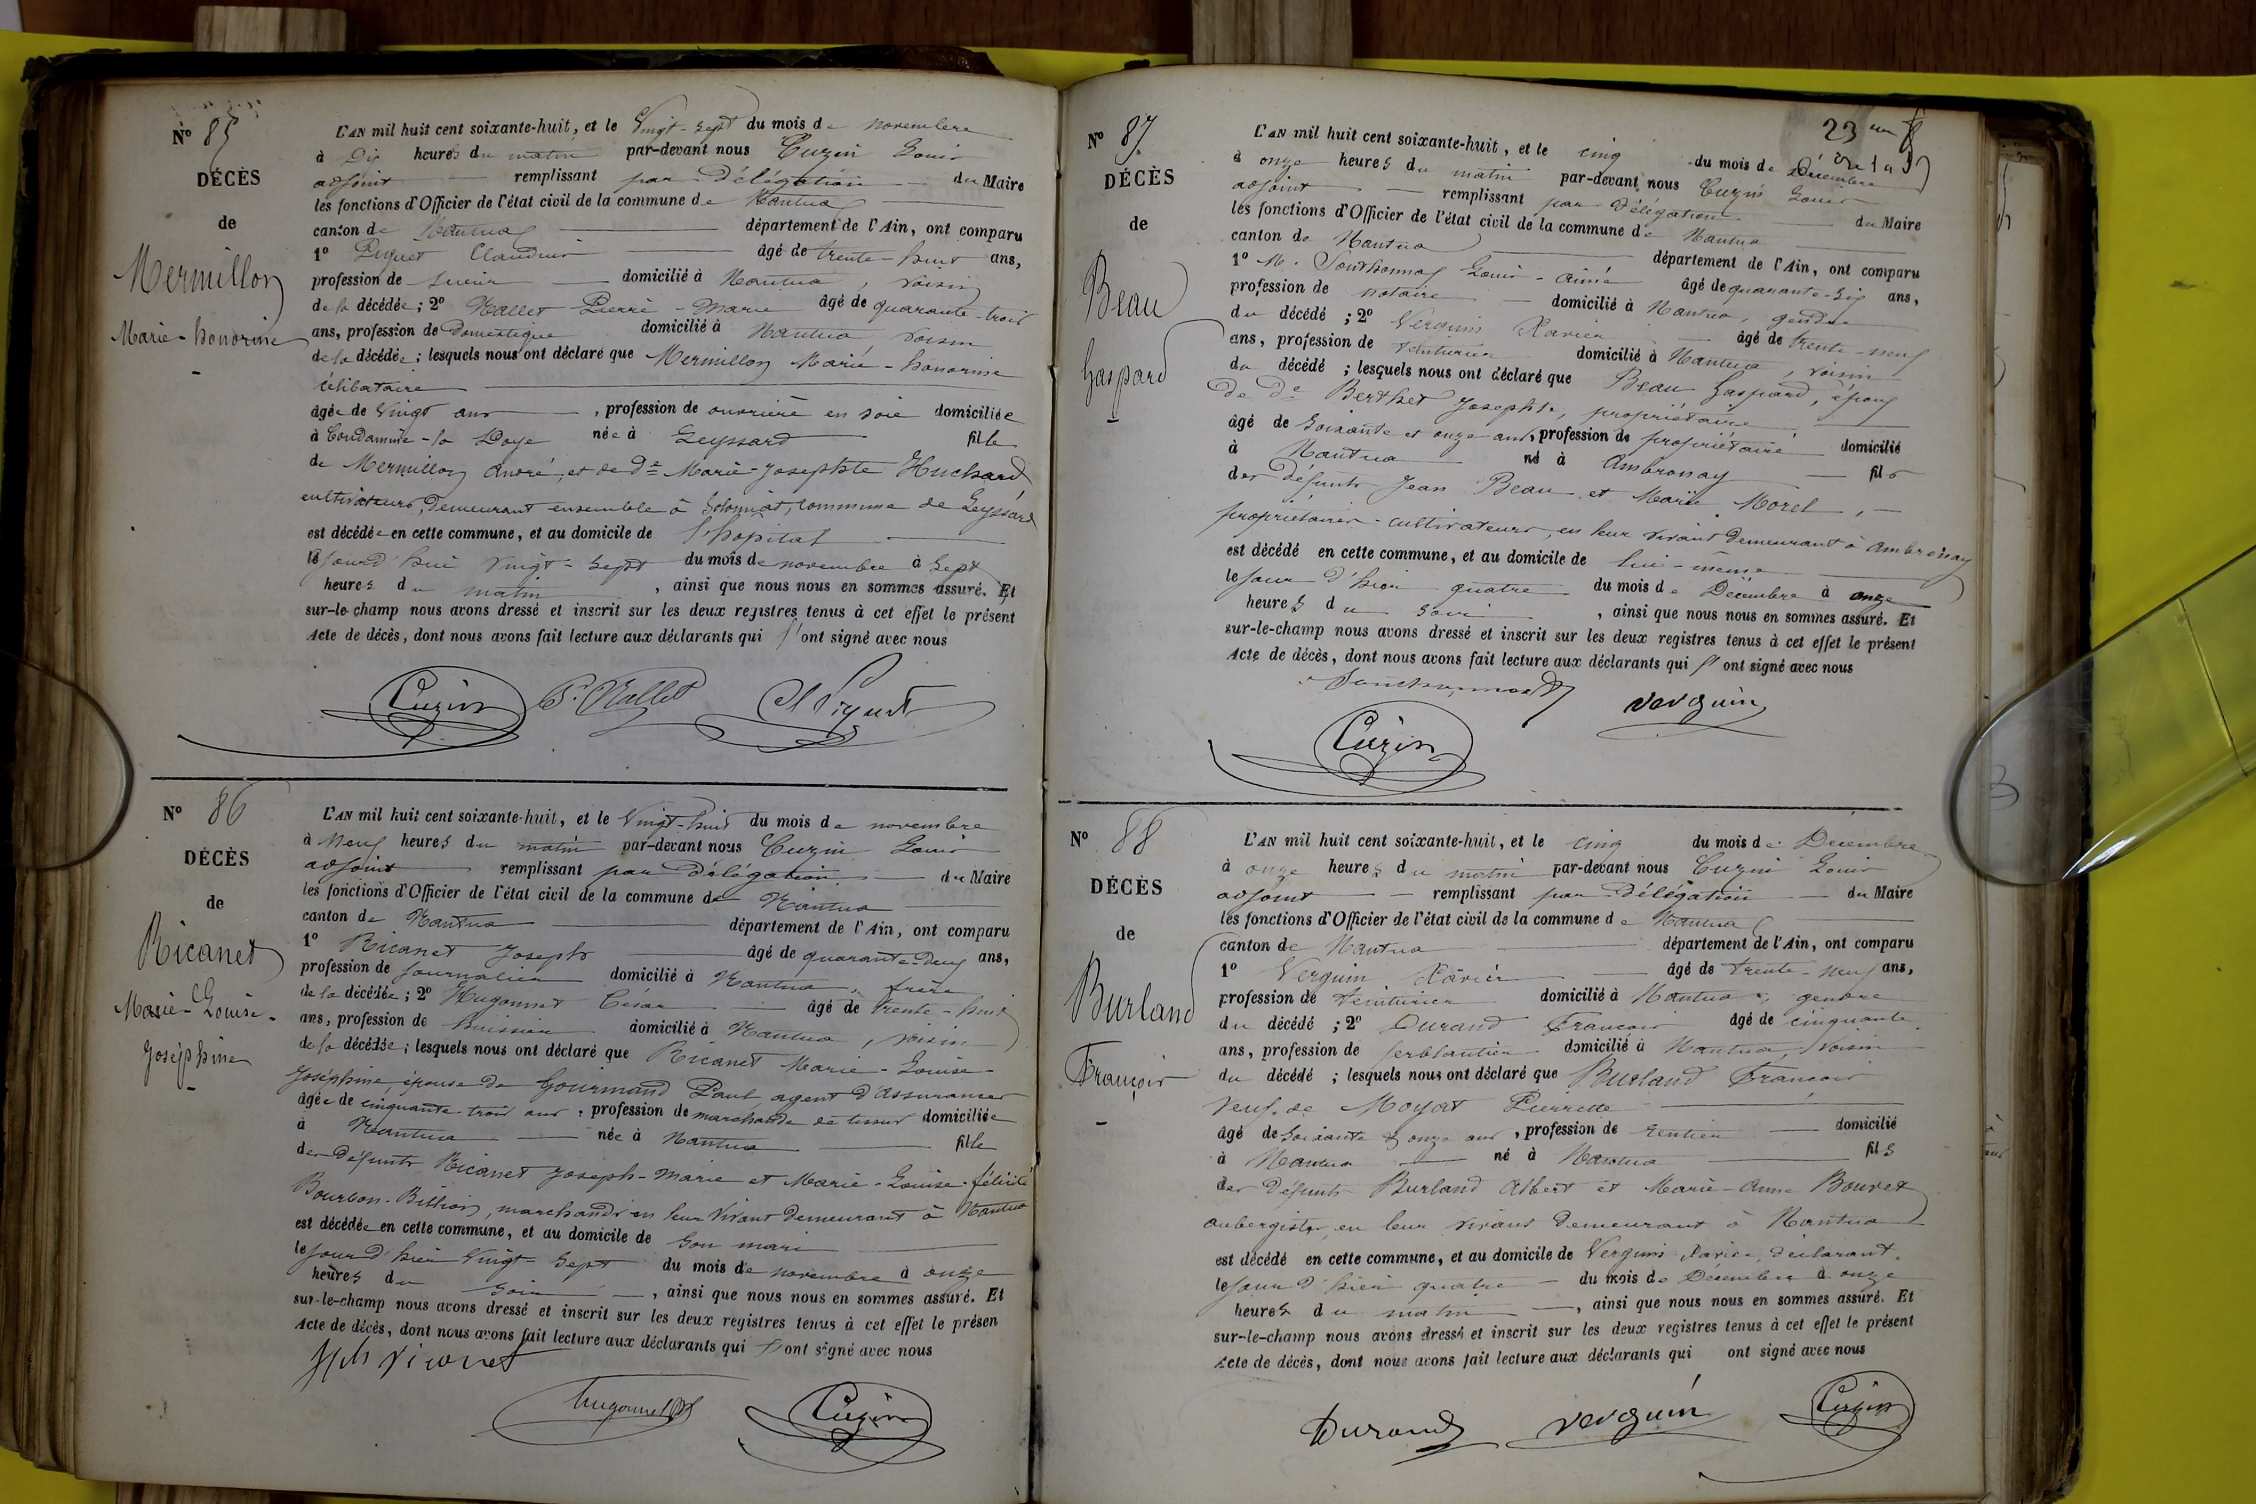 N° 85
DÉCÈS
de
Mermillon
Marie-honorine
L'AN mil huit cent soixante-huit, et le Vingt-Sept du mois de novembre
à Dix heures du matin par-devant nous Cuzin Louis
adjoint remplissant par Délégation du Maire
les fonctions d'Officier de l'état civil de la commune de Nantua
canton de Nantua département de l'Ain, ont comparu
1° Piguet Claudius âgé de trente-huit ans,
profession de domicilié à Nantua, voisin
de la décédée ; 2° Vallet Pierre-Marie âgé de quarante-trois
ans, profession de Domestique domicilié à Nantua, voisin
de la décédée ; lesquels nous ont déclaré que Mermillon Marie-honorine
célibataire
âgée de Vingt ans, profession de ouvrière en soie domiciliée
à Condamine-la Doye née à Leyssard fille
de Mermillon André, et de De Marie-Josephte Huchard
cultivateurs, demeurant ensemble à Solomiat, commune de Leyssard
est décédée en cette commune, et au domicile de l'hopital
le jourd'hui vingt-sept du mois de novembre à Sept
heures du matin, ainsi que nous nous en sommes assuré. Et
sur-le-champ nous avons dressé et inscrit sur les deux registres tenus à cet effet le présent
Acte de décès, dont nous avons fait lecture aux déclarants qui l'ont signé avec nous
Cuzin P. Vallet Cl Piguet
N° 86
DÉCÈS
de
Ricanet
Marie-Louise-
Joséphine
L'AN mil huit cent soixante-huit, et le Vingt-huit du mois de novembre
à Neuf heures du matin par-devant nous Cuzin Louis
adjoint remplissant par Délégation du Maire
les fonctions d'Officier de l'état civil de la commune de Nantua
canton de Nantua département de l'Ain, ont comparu
1° Ricanet Joseph âgé de quarante-deux ans,
profession de Journalier domicilié à Nantua, frère
de la décédée ; 2° Hugonnet César âgé de trente-huit
ans, profession de huissier domicilié à Nantua, voisin
de la décédée ; lesquels nous ont déclaré que Ricanet Marie-Louise-
Joséphine, épouse de Gourmand Paul, agent d'assurances
âgée de cinquante-trois ans, profession de marchande de tissus domiciliée
à Nantua née à Nantua fille
des défunts Ricanet Joseph-Marie et Marie-Louise-félicité
Bourbon-Billion, marchands en leur vivant demeurant à Nantua
est décédée en cette commune, et au domicile de Son mari
le jour d'hier Vingt-Sept du mois de novembre à onze
heures du Soir, ainsi que nous nous en sommes assuré. Et
sur-le-champ nous avons dressé et inscrit sur les deux registres tenus à cet effet le présen
Acte de décès, dont nous avons fait lecture aux déclarants qui l'ont signé avec nous
Hugonnet Cuzin
23
N° 87
DÉCÈS
de
Beau
Gaspard
L'AN mil huit cent soixante-huit, et le cinq du mois de Décembre
à onze heures du matin par-devant nous Cuzin Louis
adjoint remplissant par Délégation du Maire
les fonctions d'Officier de l'état civil de la commune de Nantua
canton de Nantua département de l'Ain, ont comparu
1° M. Southonnax Louis-Aimé âgé de quarante-six ans,
profession de notaire domicilié à Nantua, gendre
du décédé ; 2° Verguin Xavier âgé de trente-neuf
ans, profession de teinturier domicilié à Nantua, voisin
du décédé ; lesquels nous ont déclaré que Beau, Gaspard, époux
de De Berthet Josephte, propriétaire
âgé de Soixante et onze ans, profession de propriétaire domicilié
à Nantua né à Ambronay fils
des défunts Jean Beau et Marie Morel,
propriétaires-cultivateurs, en leur vivant demeurant à Ambronay
est décédé en cette commune, et au domicile de lui-même
le jour d'hier quatre du mois de Décembre à onze
heures du Soir, ainsi que nous nous en sommes assuré. Et
sur-le-champ nous avons dressé et inscrit sur les deux registres tenus à cet effet le présent
Acte de décès, dont nous avons fait lecture aux déclarants qui l'ont signé avec nous
Southonnax Verguin
Cuzin
N° 88
DÉCÈS
de
Burland
François
L'AN mil huit cent soixante-huit, et le cinq du mois de Décembre
à onze heures du matin par-devant nous Cuzin Louis
adjoint remplissant par Délégation du Maire
les fonctions d'Officier de l'état civil de la commune de Nantua
canton de Nantua département de l'Ain, ont comparu
1° Verguin Xavier âgé de trente-neuf ans,
profession de teinturier domicilié à Nantua, gendre
du décédé ; 2° Durand François âgé de cinquante
ans, profession de ferblantier domicilié à Nantua, Voisin
du décédé ; lesquels nous ont déclaré que Burland François
veuf de Moyat Pierrette
âgé de Soixante & onze ans, profession de rentier domicilié
à Nantua né à Nantua fils
des défunts Burland Albert et Marie-Anne Bouvet
aubergistes, en leur vivant demeurant à Nantua
est décédé en cette commune, et au domicile de Verguin Xavier, déclarant.
le jour d'hier quatre du mois de Décembre à onze
heures du matin, ainsi que nous nous en sommes assuré. Et
sur-le-champ nous avons dressé et inscrit sur les deux registres tenus à cet effet le présent
Acte de décès, dont nous avons fait lecture aux déclarants qui ont signé avec nous
Durand Verguin Cuzin